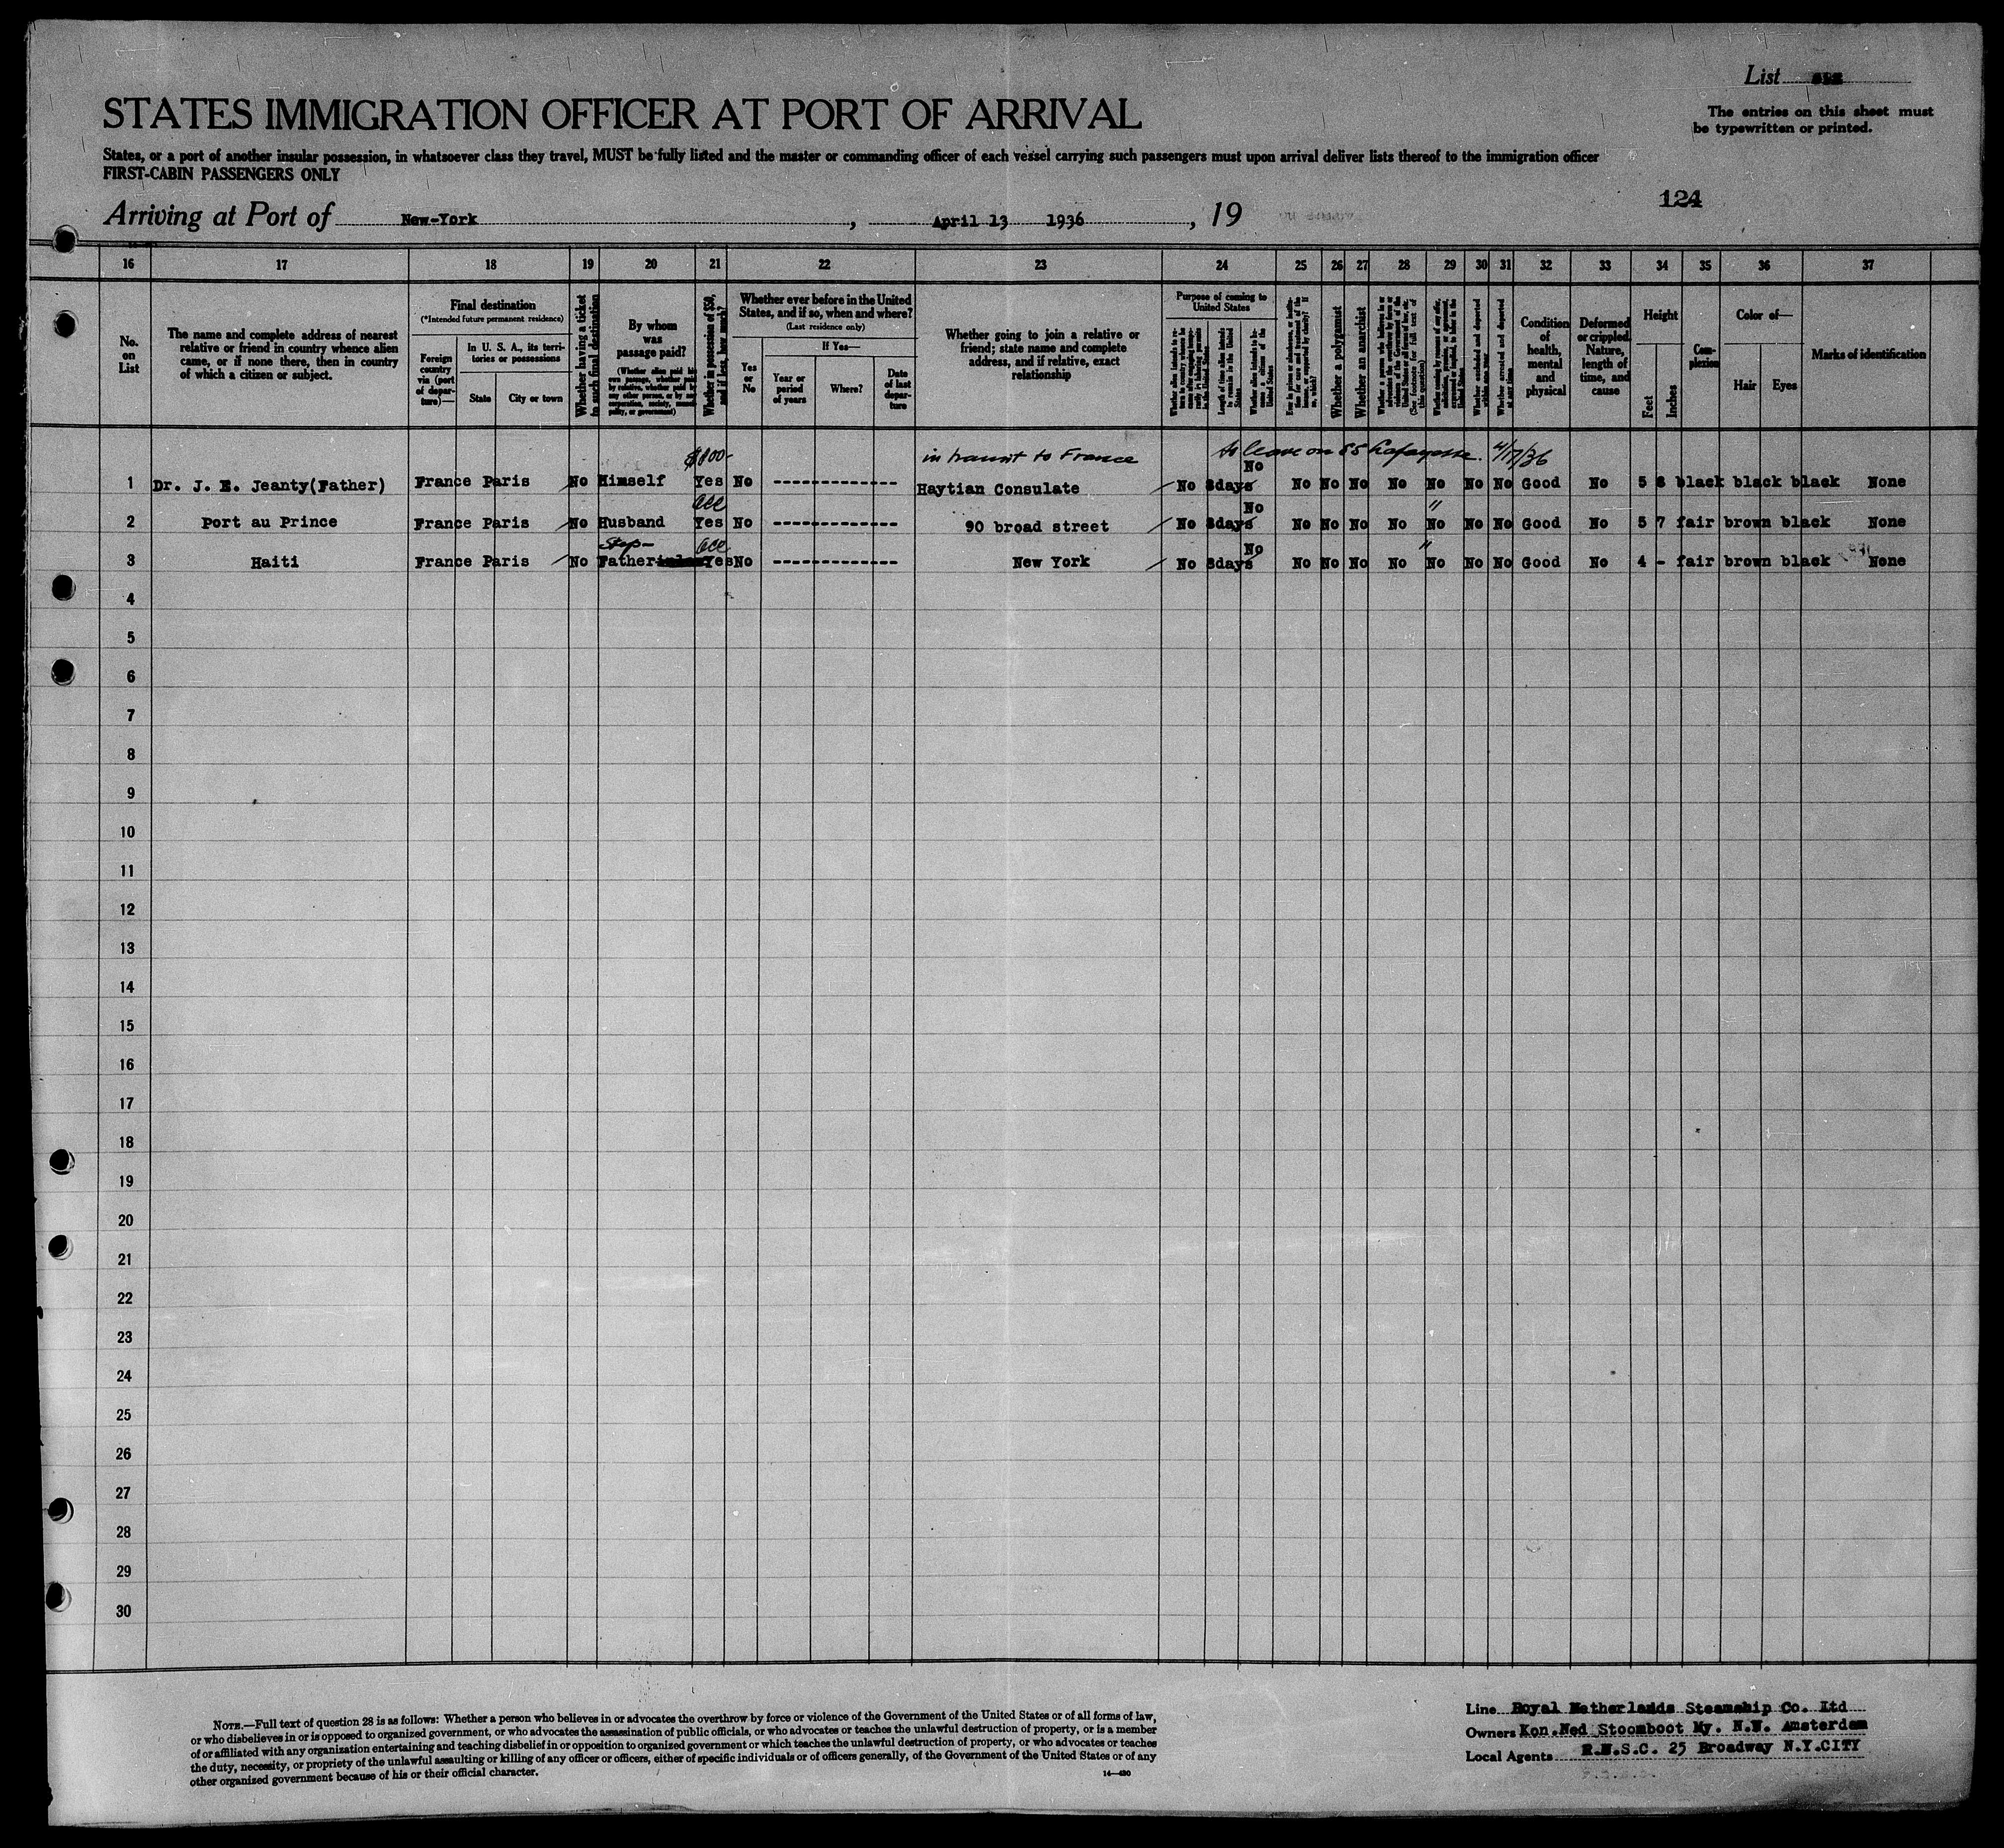 List
STATES IMMIGRATION OFFICER AT PORT OF ARRIVAL
The entries on this sheet must
be typewritten or printed.
States, or a port of another insular possession, in whatsoever class they travel, MUST be fully listed and the master or commanding officer of each vessel carrying such passengers must upon arrival deliver lists thereof to the immigration officer
FIRST-CABIN PASSENGERS ONLY
124
Arriving at Port of New-York, April 13 1936, 19
16 17 18 19 20 21 22 23 24 25 26 27 28 29 30 31 32 33 34 35 36 37
No. on List
The name and complete address of nearest
relative or friend in country whence alien
came, or if none there, then in country
of which a citizen or subject.
Final destination
(*Intended future permanent residence)
Foreign country via (port of departure)—
In U. S. A., its territories or possessions
State
City or town
Whether having a ticket to such final destination
By whom was passage paid?
(Whether alien paid his own passage, whether paid by relative, whether paid by any other person, or by any corporation, society, municipality, or government)
Whether in possession of $50, and if less, how much?
Whether ever before in the United
States, and if so, when and where?
(Last residence only)
Yes or No
If Yes—
Year or period of years
Where?
Date of last departure
Whether going to join a relative or
friend; state name and complete
address, and if relative, exact
relationship
Purpose of coming to
United States
Length of time alien intends to remain in the United States
Whether alien intends to become a citizen of the United States
Whether a polygamist
Whether an anarchist
Condition of health, mental and physical
Deformed or crippled. Nature, length of time, and cause
Height
Feet
Inches
Complexion
Color of—
Hair
Eyes
Marks of identification
$800- in transit to France to leave on SS Lafayette. 4/17/36
No
1 Dr. J. E. Jeanty(Father) France Paris No Himself Yes No ------------- Haytian Consulate No 8days No No No No No No No Good No 5 8 black black black None
acc No "
2 Port au Prince France Paris No Husband Yes No ------------- 90 broad street No 8days No No No No No No No Good No 5 7 fair brown black None
Step- acc No "
3 Haiti France Paris No Father Yes No ------------- New York No 8days No No No No No No No Good No 4 - fair brown black None
4
5
6
7
8
9
10
11
12
13
14
15
16
17
18
19
20
21
22
23
24
25
26
27
28
29
30
NOTE.—Full text of question 28 is as follows: Whether a person who believes in or advocates the overthrow by force or violence of the Government of the United States or of all forms of law,
or who disbelieves in or is opposed to organized government, or who advocates the assassination of public officials, or who advocates or teaches the unlawful destruction of property, or is a member
of or affiliated with any organization entertaining and teaching disbelief in or opposition to organized government or which teaches the unlawful destruction of property, or who advocates or teaches
the duty, necessity, or propriety of the unlawful assaulting or killing of any officer or officers, either of specific individuals or of officers generally, of the Government of the United States or of any
other organized government because of his or their official character.
14—430
Line Royal Netherlands Steamship Co. Ltd
Owners Kon.Ned Stoomboot My. N.V. Amsterdam
Local Agents R.N.S.C. 25 Broadway N.Y.CITY